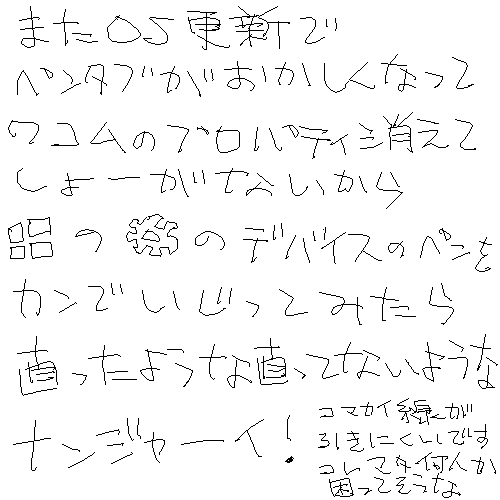 またOS更新で
ペンタブがおかしくなって
ワコムのプロパティ消えて
しょーがないから
つのデバイスのペンを
カンでいじってみたら
直ったような直ってないような
ナンジャーイ!
コマカイ線が
引きにくいです
コレマタ何人か
困ってそうな